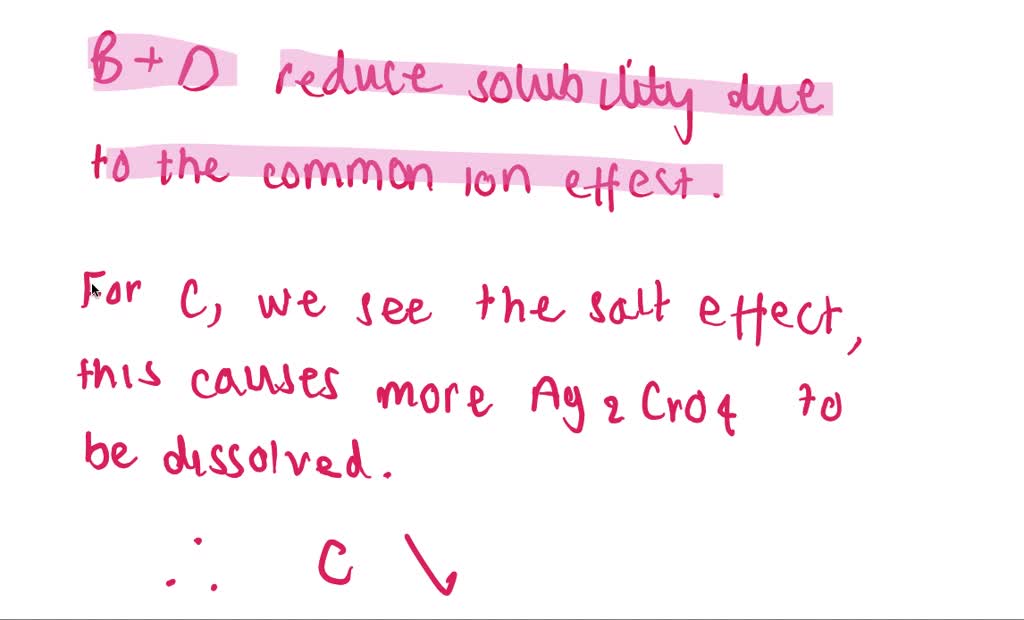 B + D reduce solubility due
to the common ion effect.
For C, we see the salt effect,
this causes more Ag2CrO4 to
be dissolved.
∴ C